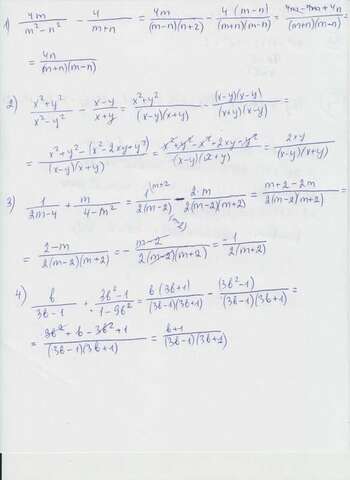 1) \frac{4m}{m^2-n^2} - \frac{4}{m+n} = \frac{4m}{(m-n)(n+2)} - \frac{4(m-n)}{(m+n)(m-n)} = \frac{4m-4m+4n}{(m+n)(m-n)} =
= \frac{4n}{(m+n)(m-n)}
2) \frac{x^2+y^2}{x^2-y^2} - \frac{x-y}{x+y} = \frac{x^2+y^2}{(x-y)(x+y)} - \frac{(x-y)(x-y)}{(x+y)(x-y)} =
= \frac{x^2+y^2-(x^2-2xy+y^2)}{(x-y)(x+y)} = \frac{x^2+y^2-x^2+2xy-y^2}{(x-y)(x+y)} = \frac{2xy}{(x-y)(x+y)}
3) \frac{1}{2m-4} + \frac{m}{4-m^2} = \frac{1^{(m+2}}{2(m-2)} - \frac{2 \cdot m}{2(m-2)(m+2)} = \frac{m+2-2m}{2(m-2)(m+2)} =
= \frac{2-m}{2(m-2)(m+2)} = - \frac{m-2}{2(m-2)(m+2)} = \frac{-1}{2(m+2)}
4) \frac{b}{3b-1} + \frac{3b^2-1}{1-9b^2} = \frac{b(3b+1)}{(3b-1)(3b+1)} - \frac{(3b^2-1)}{(3b-1)(3b+1)} =
= \frac{3b^2+b-3b^2+1}{(3b-1)(3b+1)} = \frac{b+1}{(3b-1)(3b+1)}